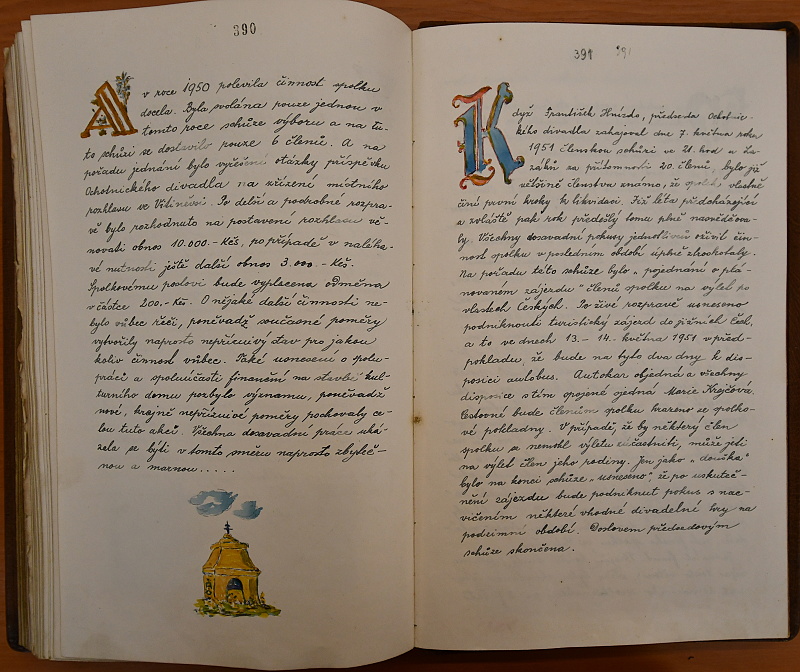 390
A v roce 1950 polevila činnost spolku
docela. Byla svolána pouze jednou v
tomto roce schůze výboru a na tu-
to schůzi se dostavilo pouze 6 členů. A na
pořadu jednání bylo vyřešení otázky příspěvku
Ochotnického divadla na zřízení místního
rozhlasu ve Vtiněvsi. Po delší a podrobné rozpra-
vě bylo rozhodnuto na postavení rozhlasu vě-
novati obnos 10.000.- Kčs, po případě v naléha-
vé nutnosti ještě další obnos 3.000.- Kčs.
Spolkovému poslovi bude vyplacena odměna
v částce 200.- Kčs. O nějaké další činnosti ne-
bylo vůbec řeči, poněvadž současné poměry
vytvořily naprosto nepříznivý stav pro jakou
koliv činnost vůbec. Také usnesení o spolu-
práci a spoluúčasti finanční na stavbě kul-
turního domu pozbylo významu, poněvadž
nové, krajně nepříznivé poměry pochovaly ce-
lou tuto akci. Všechna dosavadní práce uká-
zala se býti v tomto směru naprosto zbyteč-
nou a marnou.....
391 391
Když František Hnízdo, předseda Ochotnic-
kého divadla zahajoval dne 7. května roku
1951 členskou schůzi ve 21. hod u La-
záků za přítomnosti 20. členů, bylo již
většině členstva známo, že spolek vlastně
činí první kroky k likvidaci. Již léta předcházející
a zvláště pak rok předešlý tomu plně nasvědčova-
ly. Všechny dosavadní pokusy jednotlivců oživit čin-
nost spolku v posledním období úplně ztroskotaly.
Na pořadu této schůze bylo „pojednání o plá-
novaném zájezdu" členů spolku na výlet po
vlastech českých. Po živé rozpravě usneseno
podniknouti turistický zájezd do jižních Čech,
a to ve dnech 13.- 14. května 1951 v před-
pokladu, že bude na tyto dva dny k dis-
posici autobus. Autokar objedná a všechny
disposice s tím spojené zjedná Marie Krejčová.
Cestovné bude členům spolku hrazeno ze spolko-
vé pokladny. V případě, že by některý člen
spolku se nemohl výletu zúčastniti, může jeti
na výlet člen jeho rodiny. Jen jako „douška"
bylo na konci schůze „usneseno", že po uskuteč-
nění zájezdu bude podniknut pokus s nac-
vičením některé vhodné divadelní hry na
podzimní období. Doslovem předsedovým
schůze skončena.